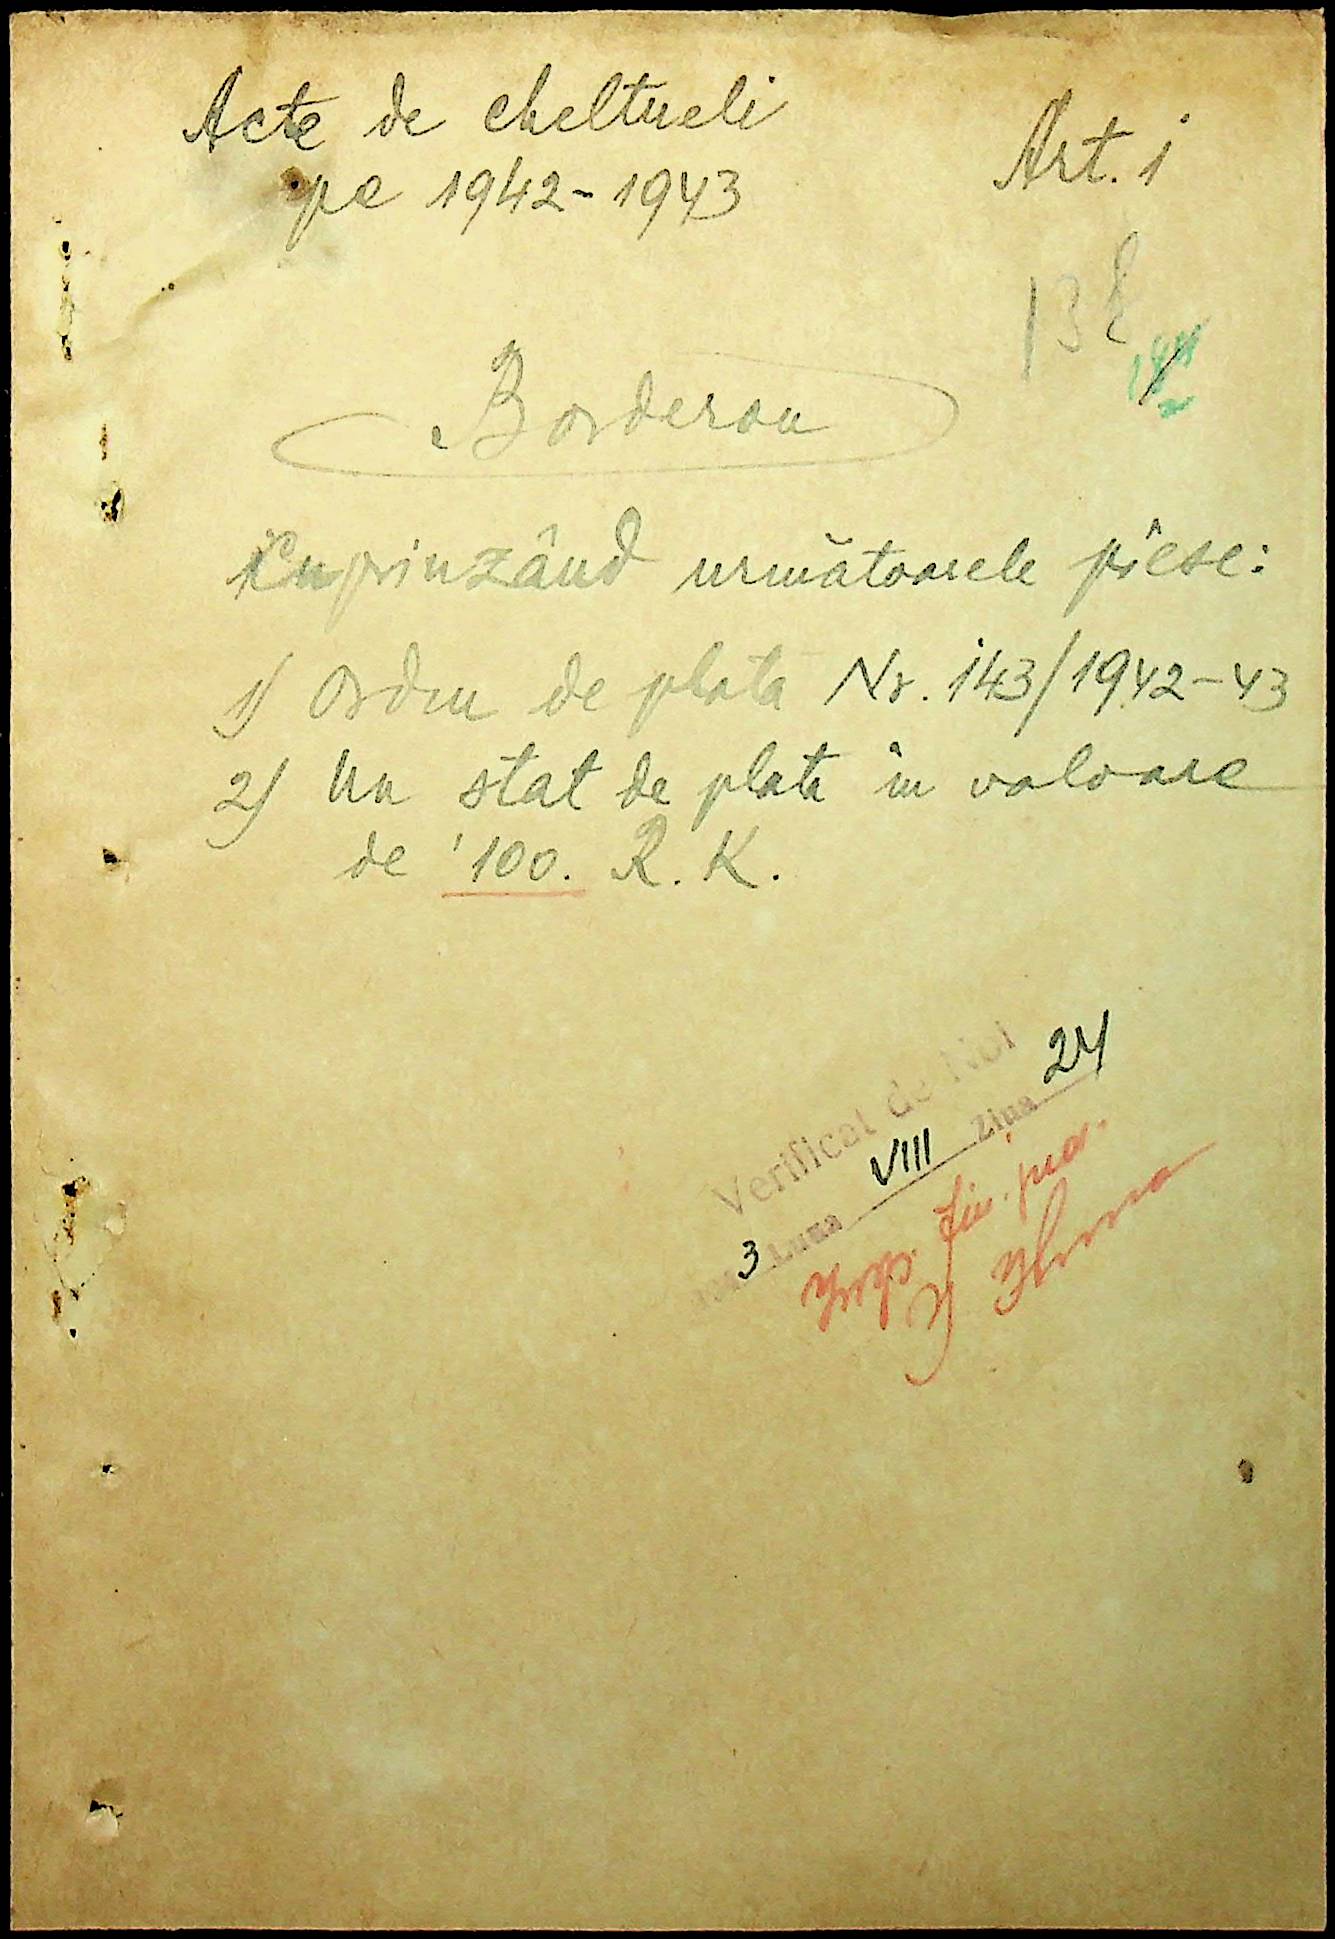 Acte de cheltueli
pe 1942-1943
Art. 1
138
Borderou
Cuprinzând următoarele piese:
1) Ordin de plată Nr. 143/1942-43
2) Un stat de plată în valoare
de 100. R. K.
Verificat de Noi
3 Luna VIII Ziua 24
Insp. fin.